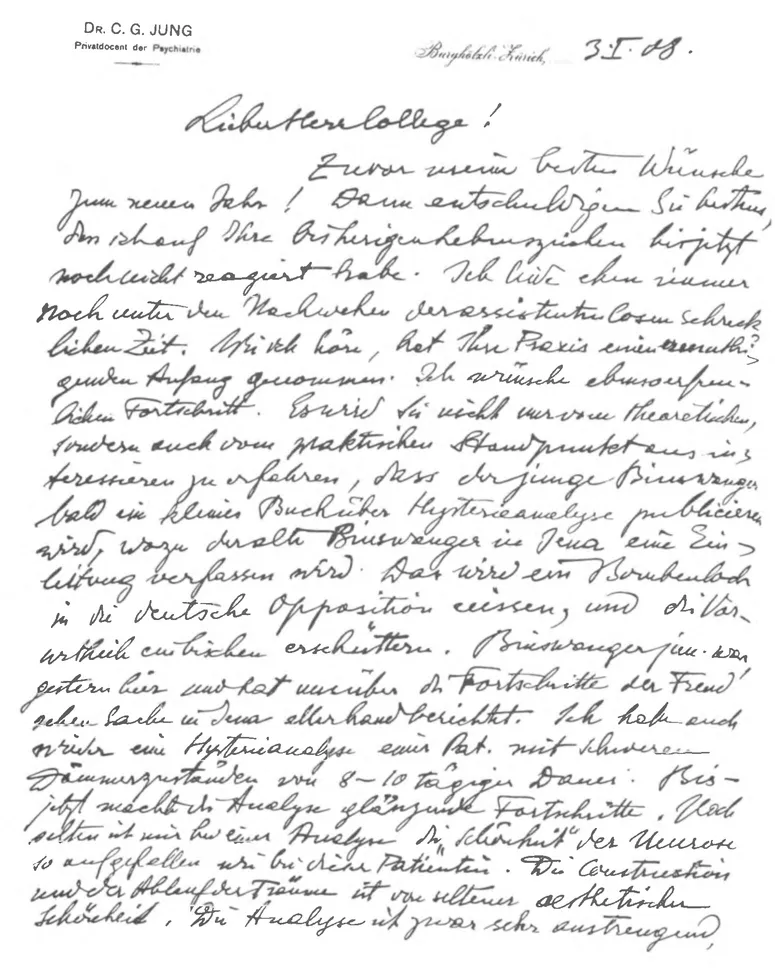 DR. C. G. JUNG
Privatdocent der Psychiatrie
Burghölzli-Zürich, 3.I.08.
Lieber Herr College!
Zuvor meine besten Wünsche
zum neuen Jahr! Dann entschuldigen Sie bestens,
dass ich auf Ihre bisherigen Lebenszeichen bis jetzt
noch nicht reagiert habe. Ich leide eben immer
noch unter den Nachwehen der assistentenlosen schreck
lichen Zeit. Wie ich höre, hat Ihre Praxis einen ermuthi-
genden Anfang genommen. Ich wünsche ebenso erfreu-
lichen Fortschritt. Es wird Sie nicht nur vom theoretischen,
sondern auch vom praktischen Standpunkt aus in-
teressieren zu erfahren, dass der junge Binswanger
bald ein kleines Buch über Hysterieanalyse publicieren
wird, wozu der alte Binswanger in Jena eine Ein-
leitung verfassen wird. Das wird ein Bombenloch
in die deutsche Opposition reissen, und die
erschüttern. Binswanger jun. war
gestern hier und hat mir über die Fortschritte der Freud
schen Sache in Jena allerhand berichtet. Ich habe auch
wieder eine Hysterieanalyse einer Pat. mit schweren
Dämmerzuständen von 8-10 tägiger Dauer. Bis-
jetzt macht die Analyse glänzende Fortschritte. Noch
selten ist mir bei einer Analyse die „Schönheit" der Neurose
so aufgefallen wie bei dieser Patientin. Die Construction
und der Ablauf der Träume ist von seltener aesthetischer
Schönheit. Die Analyse ist zwar sehr anstrengend,